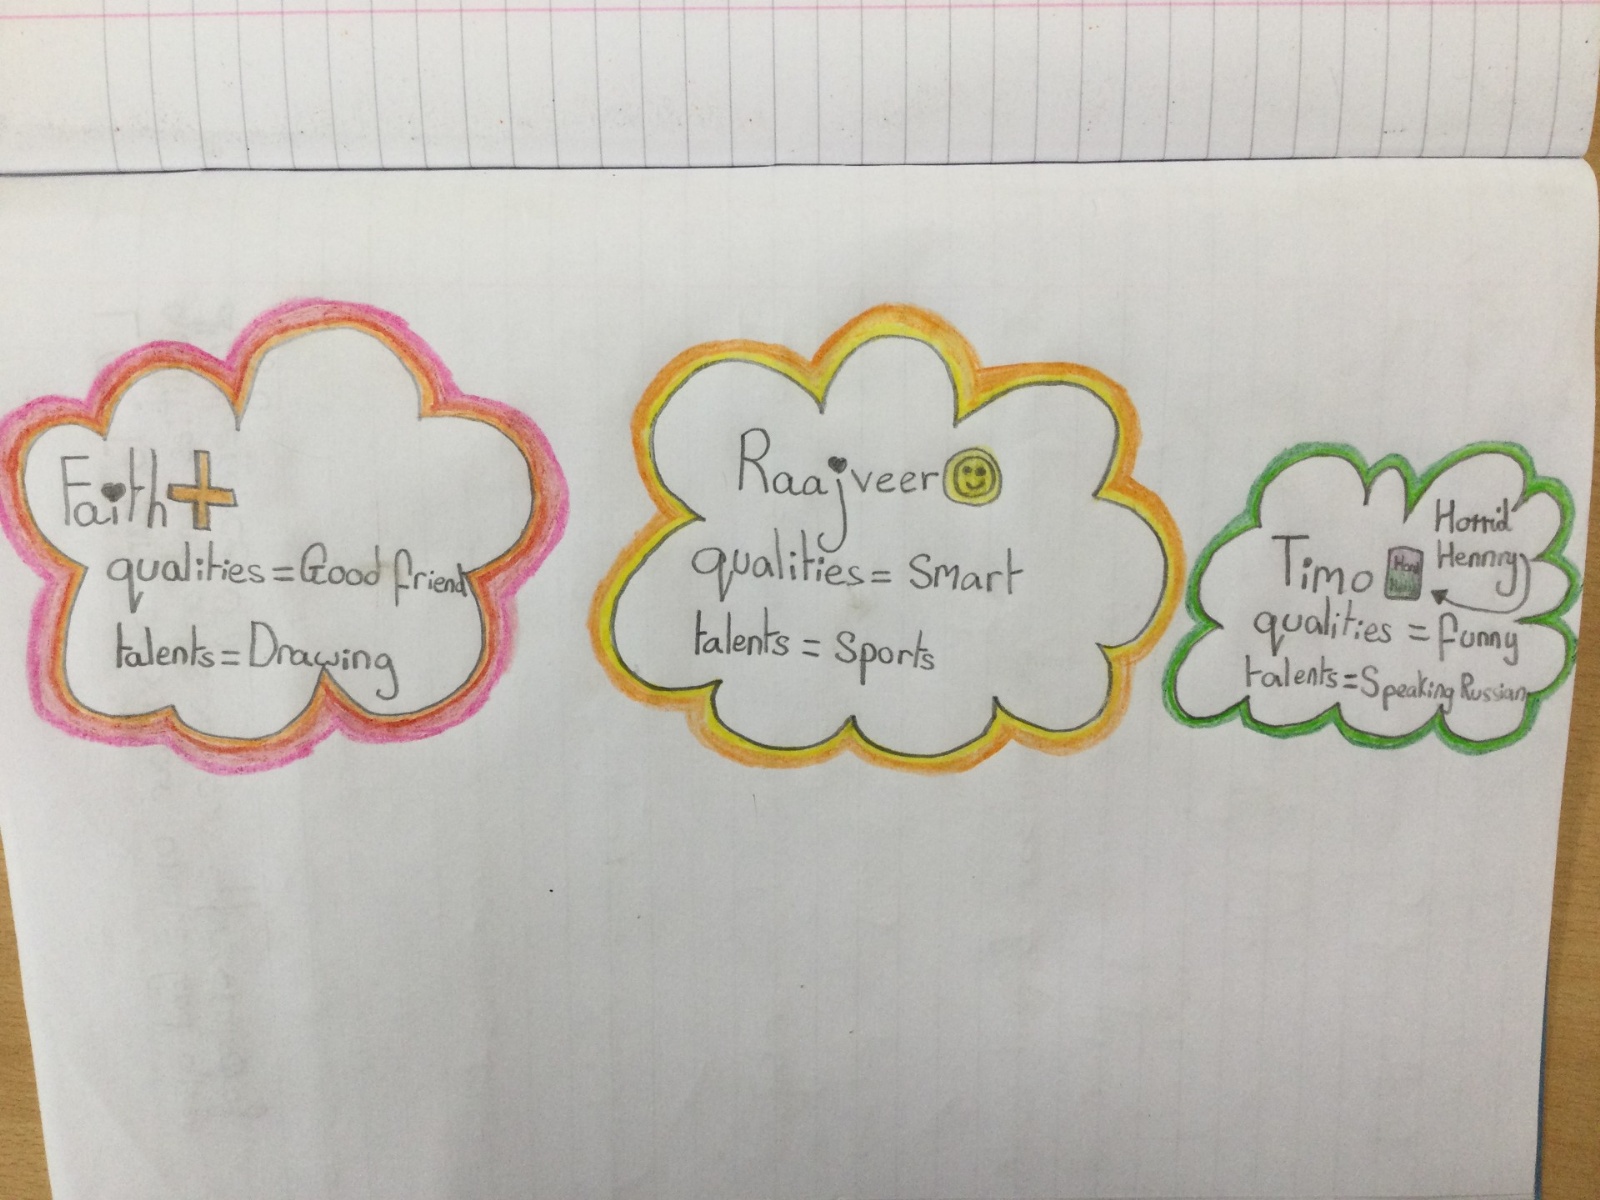 Faith
qualities = Good friend
talents = Drawing
Raajveer
qualities = Smart
talents = Sports
Horrid
Hennry
Timo
qualities = funny
talents = Speaking Russian